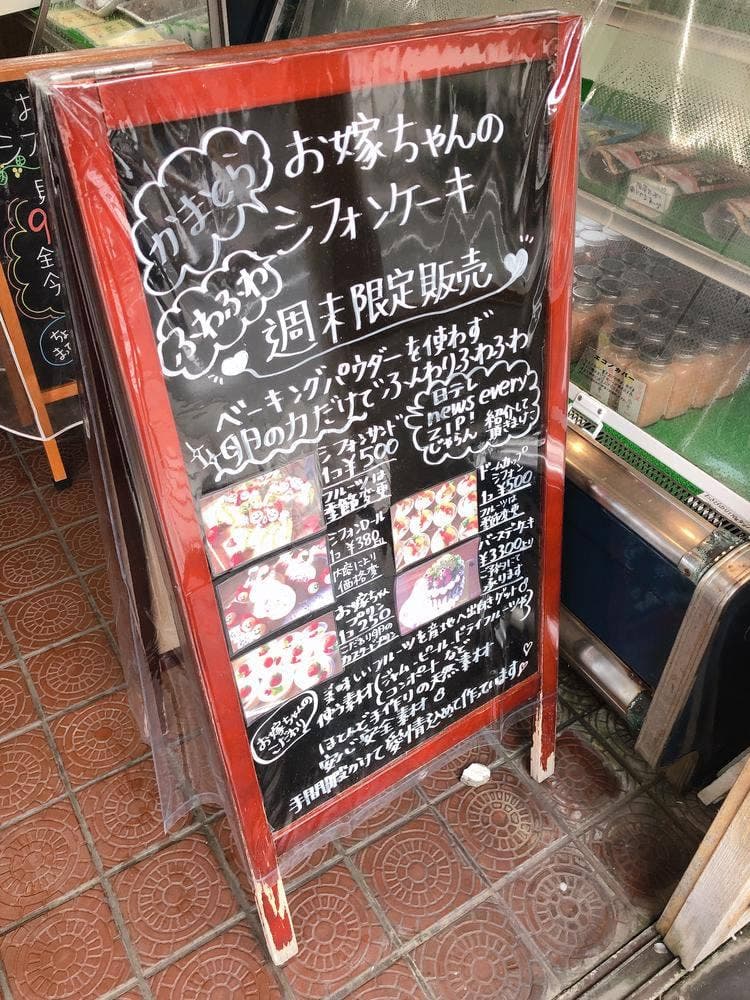 お嫁ちゃんの
シフォンケーキ
ふわふわ
週末限定販売
ベーキングパウダーを使わず
卵の力だけでふんわりふわふわ
日テレ
news every
ZIP!
じゃらん 紹介して頂きました
シフォンサンド
1コ ¥500
フルーツは
季節変更
シフォンロール
1コ ¥380
内容により
価格変
お嫁ちゃん
プリン
1コ 250
こだわり卵の
カスタードプリン
ドームカップ
シフォン
1コ ¥500
フルーツは
季節変更
バースデケーキ
¥3300より
ご予約にて
承ります
お嫁ちゃんの
こだわり
美味しいフルーツを産地へ出向きゲット
使う素材(ジャム・ピール・ドライフルーツ
コンポートなど
ほとんど手作りの天然素材
安心安全素材
手間暇かけて愛情を込めて作っています